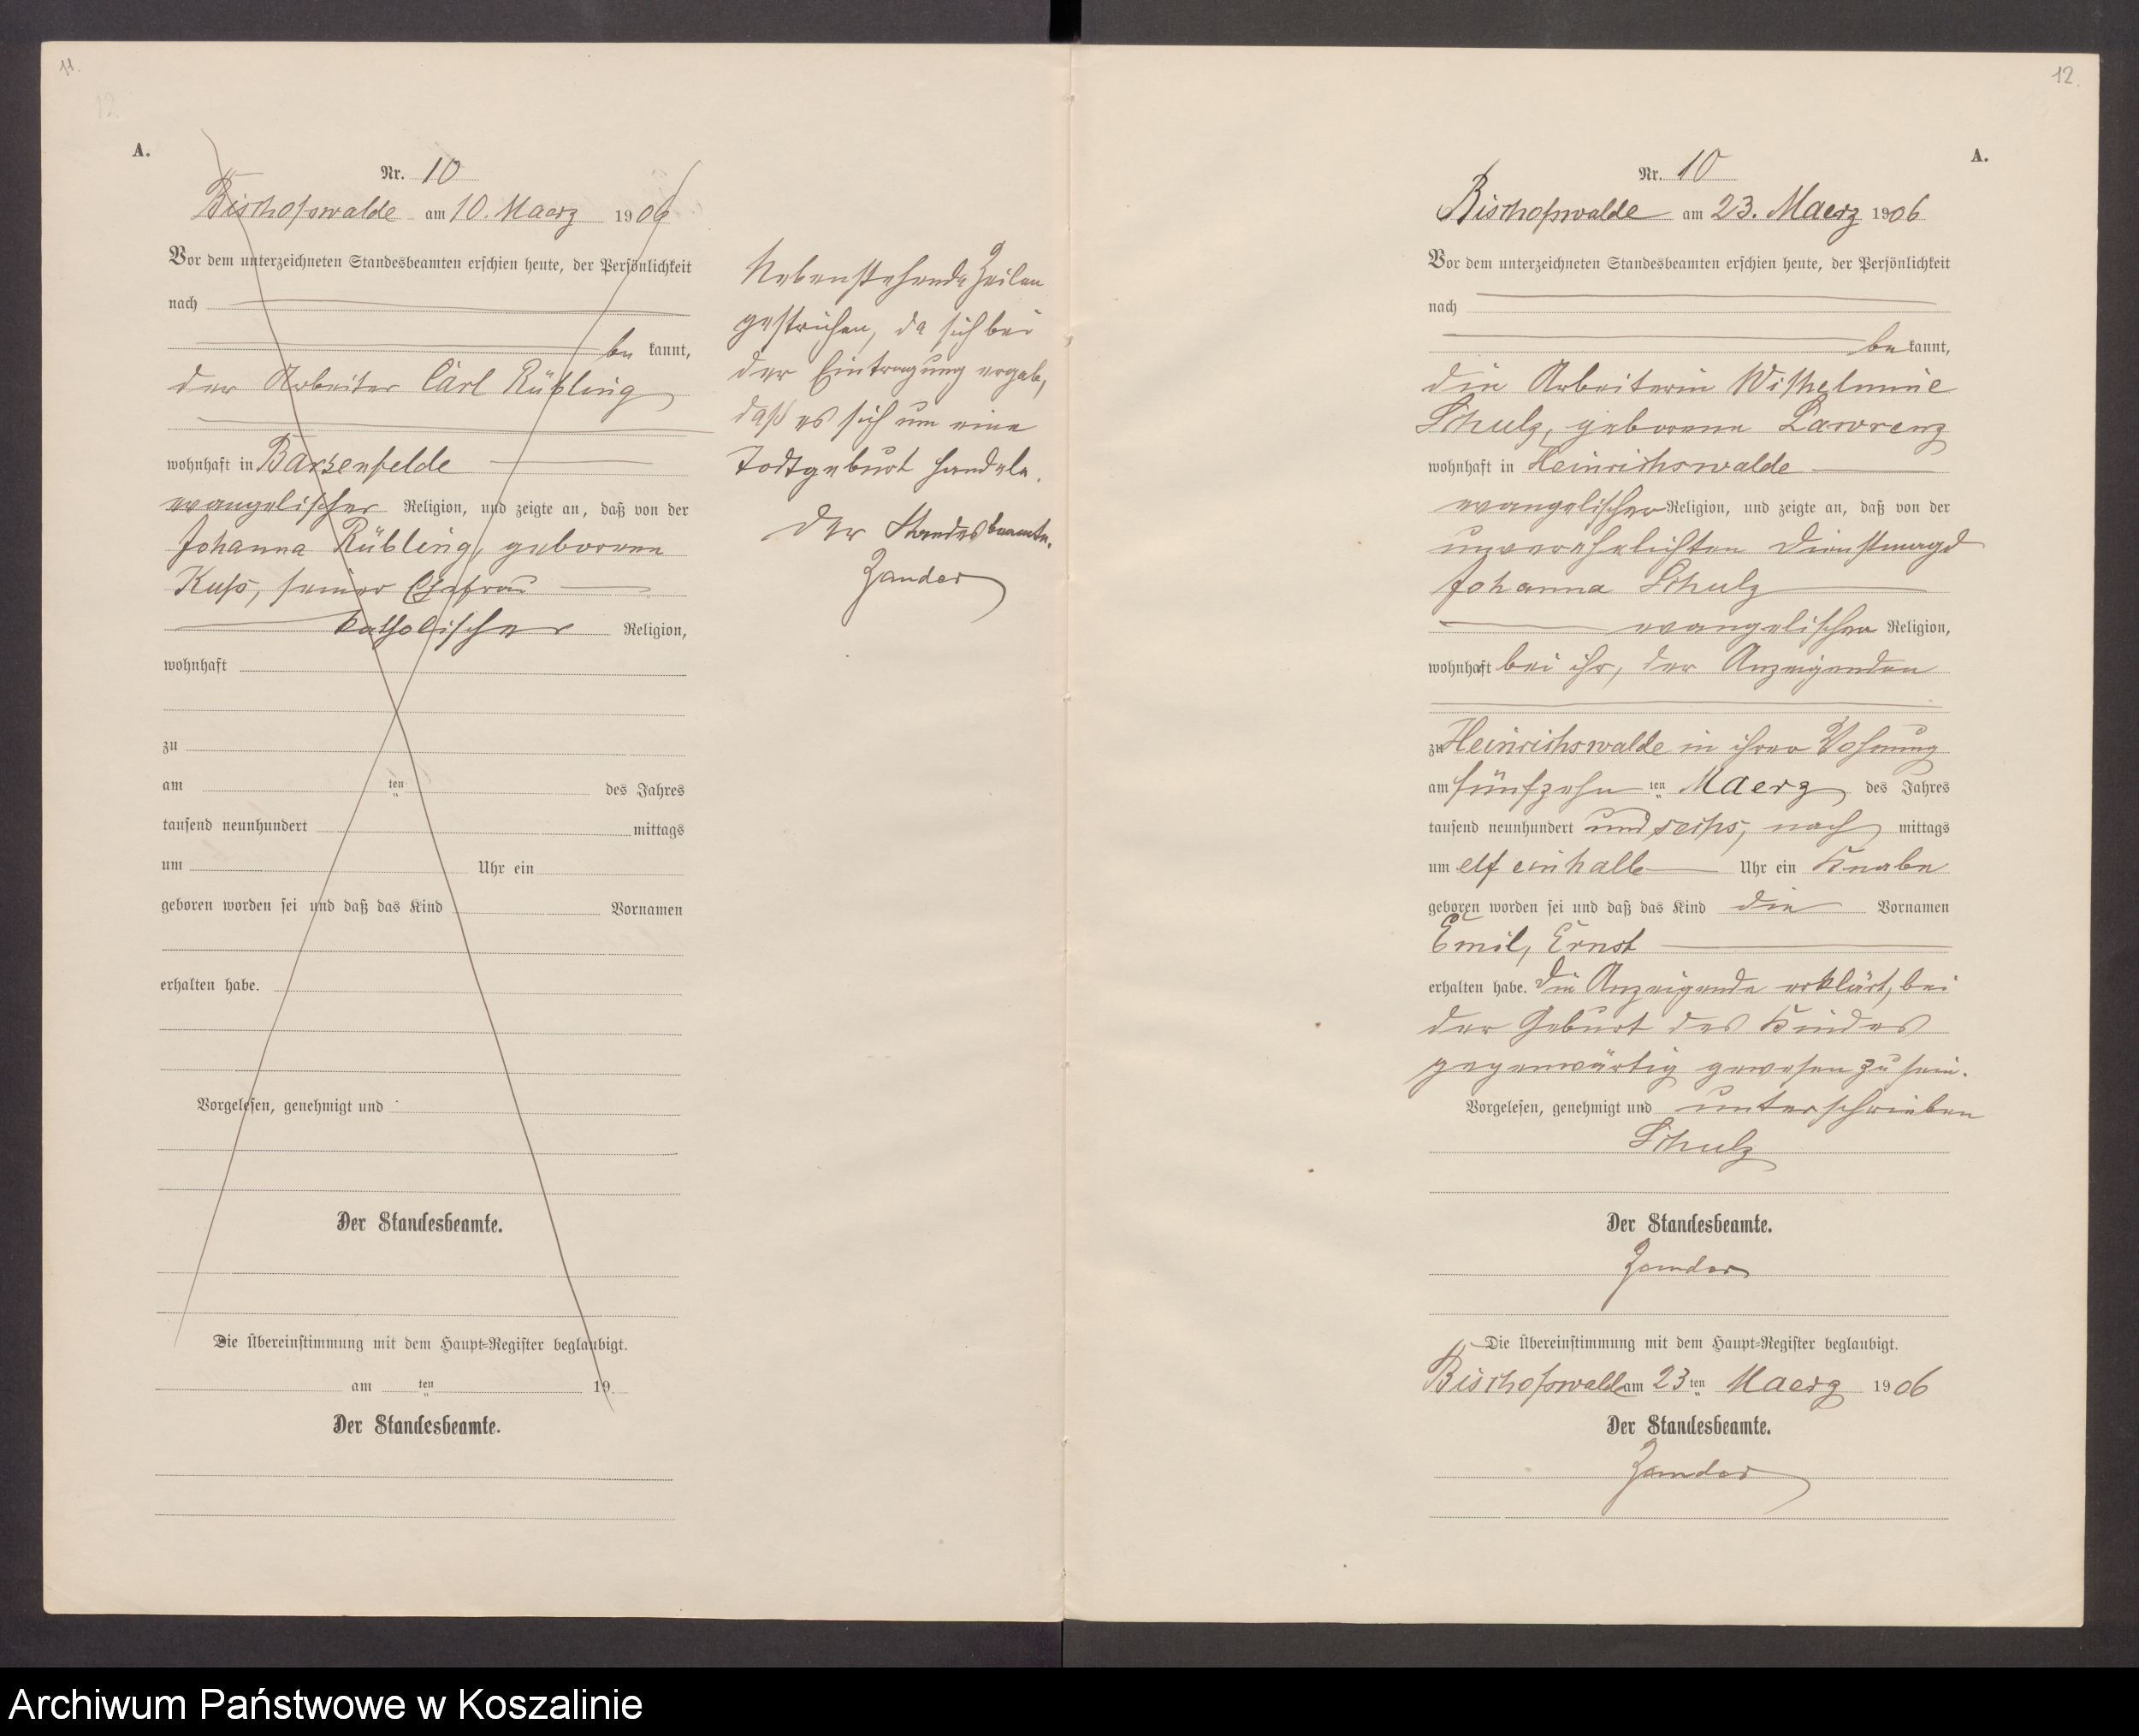 11.
12
A.
Nr. 10
Bischofswalde am 10. Maerz 1906
Vor dem unterzeichneten Standesbeamten erschien heute, der Persönlichkeit
nach
be kannt,
der Arbeiter Carl Rübling
wohnhaft in Barkenfelde
evangelischer Religion, und zeigte an, daß von der
Johanna Rübling, geborene
Kuss, seiner Ehefrau
katholischer Religion,
wohnhaft
zu
am ten des Jahres
tausend neunhundert mittags
um Uhr ein
geboren worden sei und daß das Kind Vornamen
erhalten habe.
Vorgelesen, genehmigt und
Der Standesbeamte.
Die Übereinstimmung mit dem Haupt-Register beglaubigt.
am ten 19
Der Standesbeamte.
Nebenstehende Zeilen
gestrichen, da sich bei
der Eintragung ergab,
daß es sich um eine
Todtgeburt handele.
Der Standesbeamte.
Zander
12.
A.
Nr. 10
Bischofswalde am 23. Maerz 1906
Vor dem unterzeichneten Standesbeamten erschien heute, der Persönlichkeit
nach
be kannt,
die Arbeiterin Wilhelmine
Schulz, geborene Lawrenz
wohnhaft in Heinrichswalde
evangelischer Religion, und zeigte an, daß von der
unverehelichten Dienstmagd
Johanna Schulz
evangelischer Religion,
wohnhaft bei ihr, der Anzeigenden
zu Heinrichswalde in ihrer Wohnung
am fünfzehn ten Maerz des Jahres
tausend neunhundert und sechs, nach mittags
um elf einhalb Uhr ein Knabe
geboren worden sei und daß das Kind die Vornamen
Emil, Ernst
erhalten habe. Die Anzeigende erklärt, bei
der Geburt des Kindes
gegenwärtig gewesen zu sein.
Vorgelesen, genehmigt und unterschrieben
Schulz
Der Standesbeamte.
Zander
Die Übereinstimmung mit dem Haupt-Register beglaubigt.
Bischofswalde am 23 ten Maerz 1906
Der Standesbeamte.
Zander
Archiwum Państwowe w Koszalinie